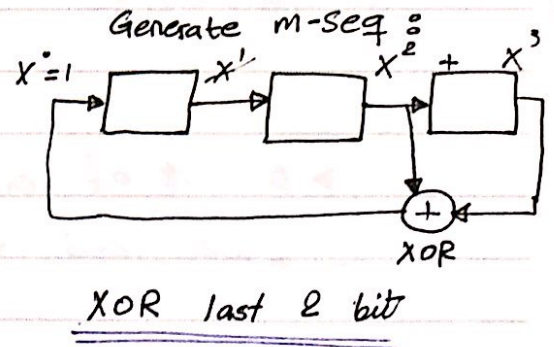 Generate m-seq :
X° = 1 X¹ X² + X³
+
XOR
XOR last 2 bit